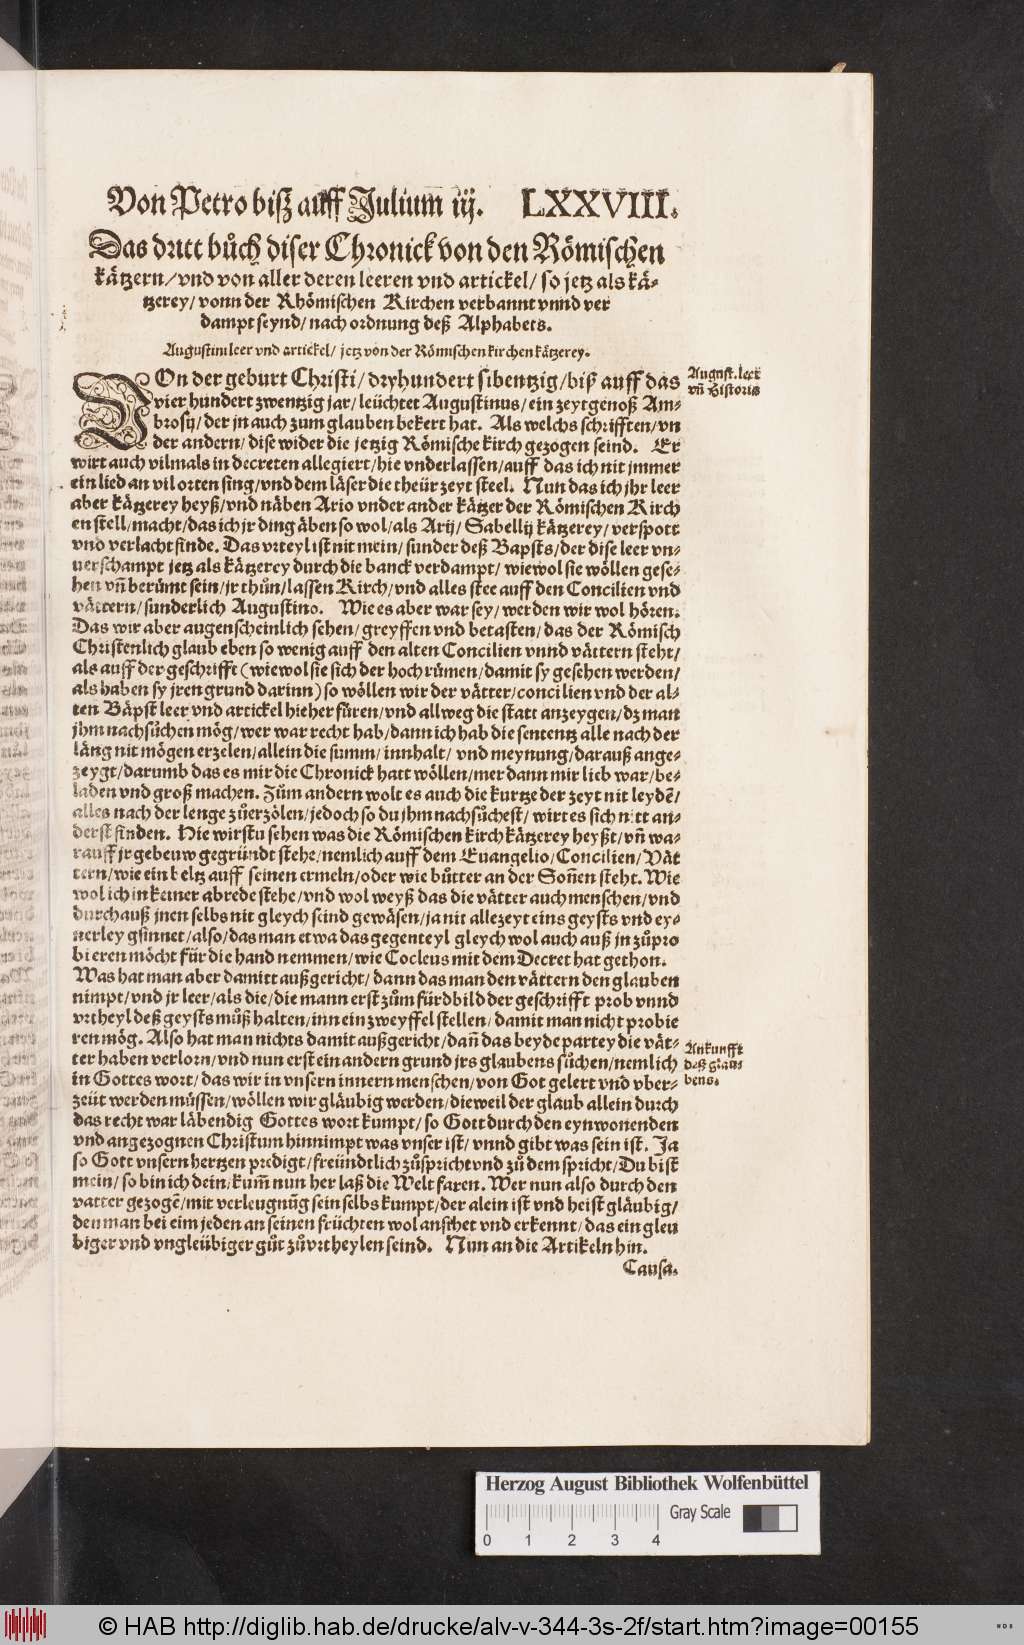 Von Petro biß auff Julium iij. LXXVIII.
Das dritt bůch diser Chronick von den Römischen
kätzern/ vnd von aller deren leeren vnd artickel/ so jetz als kä-
tzerey/ vonn der Rhömischen Kirchen verbannt vnnd ver
dampt seynd/ nach ordnung deß Alphabets.
Augustini leer vnd artickel/ jetz von der Römischen kirchen kätzerey.
VOn der geburt Christi/ dryhundert sibentzig/ biß auff das
vier hundert zwentzig jar/ leüchtet Augustinus/ ein zeytgenoß Am-
brosij/ der jn auch zum glauben bekert hat. Als welchs schrifften/ vn
der andern/ dise wider die jetzig Römische kirch gezogen seind. Er
wirt auch vilmals in decreten allegiert/ hie vnderlassen/ auff das ich nit jmmer
ein lied an vil orten sing/ vnd dem läser die theür zeyt steel. Nun das ich jhr leer
aber kätzerey heyß/ vnd näben Ario vnder ander kätzer der Römischen Kirch
en stell/ macht/ das ich jr ding äben so wol/ als Arij/ Sabellij kätzerey/ verspott
vnd verlacht finde. Das vrteyl ist nit mein/ sunder deß Bapsts/ der dise leer vn-
uerschampt jetz als kätzerey durch die banck verdampt/ wiewol sie wöllen gese-
hen vñ berümt sein/ jr thůn/ lassen Kirch/ vnd alles stee auff den Concilien vnd
vättern/ sunderlich Augustino. Wie es aber war sey/ werden wir wol hören.
Das wir aber augenscheinlich sehen/ greyffen vnd betasten/ das der Römisch
Christenlich glaub eben so wenig auff den alten Concilien vnnd vättern steht/
als auff der geschrifft (wiewol sie sich der hoch rümen/ damit sy gesehen werden/
als haben sy jren grund darinn) so wöllen wir der vätter/ concilien vnd der al-
ten Bäpst leer vnd artickel hieher füren/ vnd allweg die statt anzeygen/ dz man
jhm nachsůchen mög/ wer war recht hab/ dann ich hab die sententz alle nach der
läng nit mögen erzelen/ allein die summ/ innhalt/ vnd meynung/ darauß ange-
zeygt/ darumb das es mir die Chronick hatt wöllen/ mer dann mir lieb war/ be-
laden vnd groß machen. Zům andern wolt es auch die kurtze der zeyt nit leydẽ/
alles nach der lenge zůerzölen/ jedoch so du jhm nachsůchest/ wirt es sich nitt an-
derst finden. Hie wirstu sehen was die Römischen kirch kätzerey heyßt/ vñ wa-
rauff jr gebeuw gegründt stehe/ nemlich auff dem Euangelio/ Concilien/ Vät
tern/ wie ein beltz auff seinen ermeln/ oder wie bůtter an der Soñen steht. Wie
wol ich in keiner abrede stehe/ vnd wol weyß das die vätter auch menschen/ vnd
durchauß jnen selbs nit gleych seind gewäsen/ ja nit allezeyt eins geysts vnd ey-
nerley gsinnet/ also/ das man etwa das gegenteyl gleych wol auch auß jn zůpro
bieren möcht für die hand nemmen/ wie Cocleus mit dem Decret hat gethon.
Was hat man aber damitt außgericht/ dann das man den vättern den glauben
nimpt/ vnd jr leer/ als die/ die mann erst zům fürdbild der geschrifft prob vnnd
vrtheyl deß geysts můß halten/ inn ein zweyffel stellen/ damit man nicht probie
ren mög. Also hat man nichts damit außgericht/ dañ das beyde partey die vät-
ter haben verlorn/ vnd nun erst ein andern grund jrs glaubens sůchen/ nemlich
in Gottes wort/ das wir in vnsern innern menschen/ von Got gelert vnd vber-
zeüt werden müssen/ wöllen wir gläubig werden/ dieweil der glaub allein durch
das recht war läbendig Gottes wort kumpt/ so Gott durch den eynwonenden
vnd angezognen Christum hinnimpt was vnser ist/ vnnd gibt was sein ist. Ja
so Gott vnsern hertzen predigt/ freündtlich zůspricht vnd zů dem spricht/ Du bist
mein/ so bin ich dein/ kum̃ nun her laß die Welt faren. Wer nun also durch den
vatter gezogẽ/ mit verleugnũg sein selbs kumpt/ der alein ist vnd heist gläubig/
den man bei eim jeden an seinen früchten wol ansehet vnd erkennt/ das ein gleu
biger vnd vngleübiger gůt zůvrtheylen seind. Nun an die Artikeln hin.
Causa.
August. leer
vñ Historia
Ankunfft
deß glau-
bens.
Herzog August Bibliothek Wolfenbüttel
Gray Scale
0 1 2 3 4
© HAB http://diglib.hab.de/drucke/alv-v-344-3s-2f/start.htm?image=00155